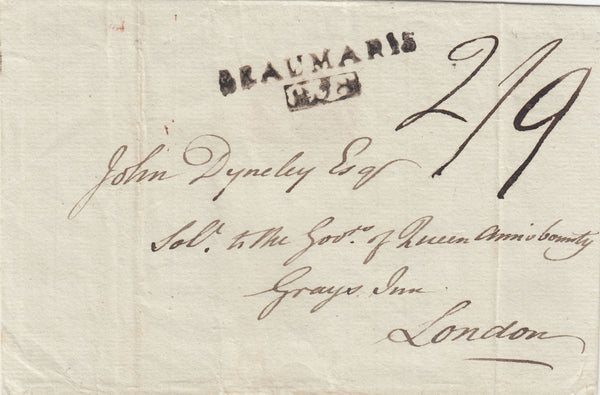 BEAUMARIS
2/9
John Dyneley Esqr
Solr. to the Govrs. of Queen Anns bounty
Grays Inn
London